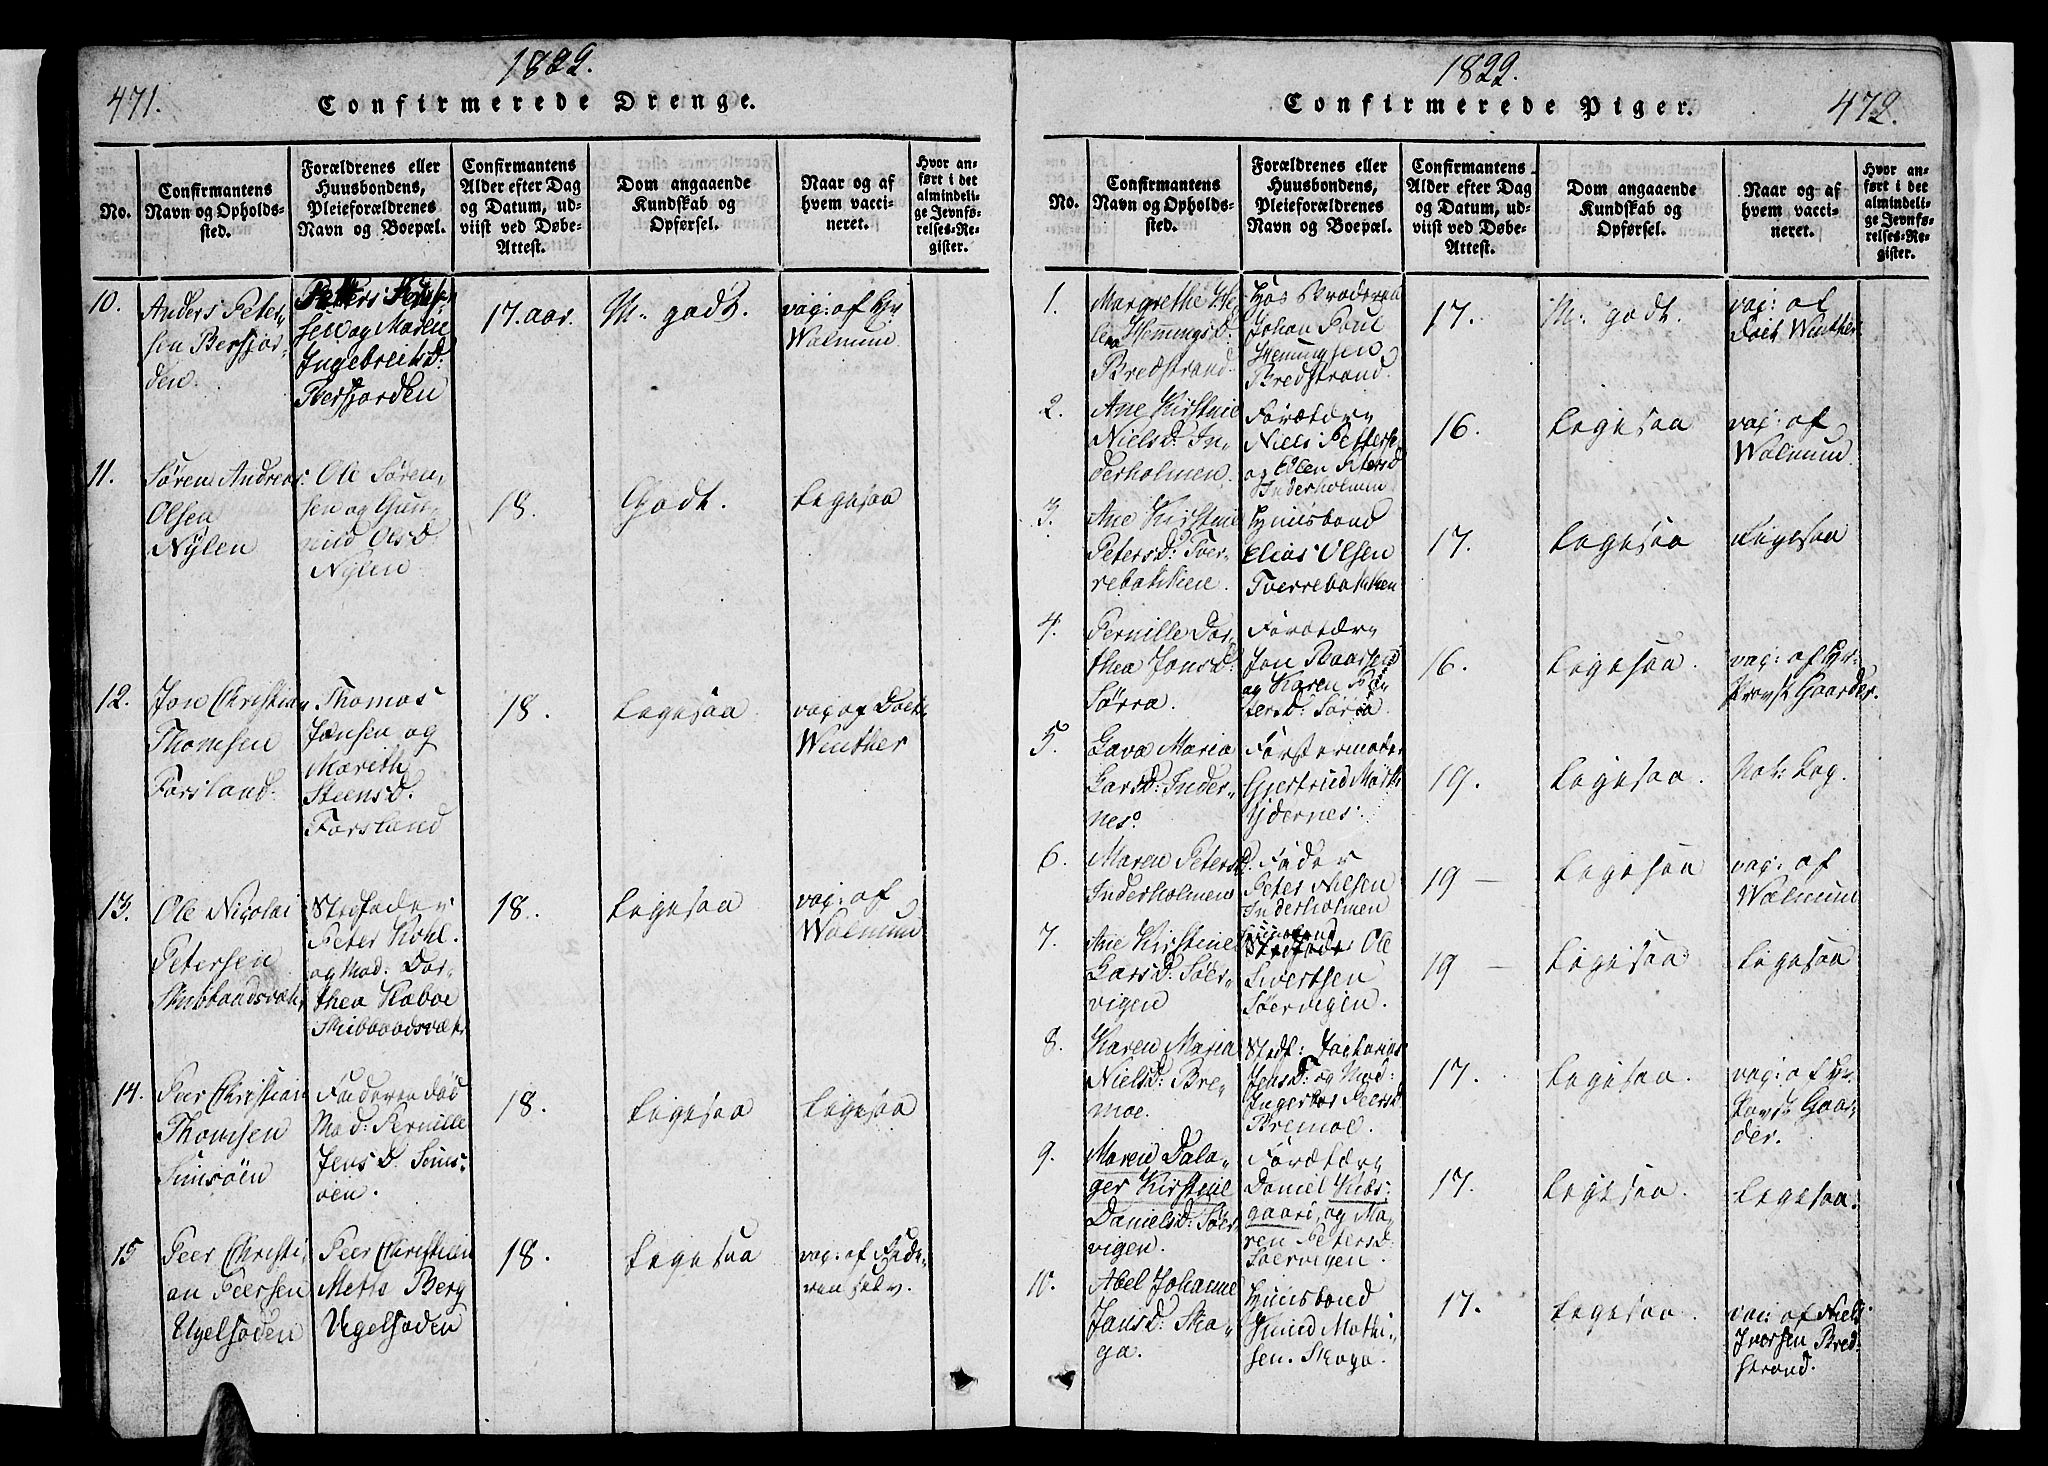 1822.
471.
Confirmerede Drenge.
No.
Confirmantens
Navn og Opholds-
sted.
Forældrenes eller
Huusbondens,
Pleieforældrenes
Navn og Boepæl.
Confirmantens
Alder efter Dag
og Datum, ud-
viist ved Døbe-
Attest.
Dom angaaende
Kundskab og
Opførsel.
Naar og af
hvem vacci-
neret.
Hvor an-
ført i det
almindeli-
ge Jevnfø-
relses-Re-
gister.
10.
Anders Peter-
sen Berfjor-
den.
Petter
sen og Maren
Ingebreitsd:
Berfjorden
17. aar.
M. godt.
vax: af Hr
Walnum
11.
Søren Andreas
Olsen
Nylen
Ole Søren-
sen og Gun-
nild Olsd.
Nylen
18.
Godt.
Ligesaa
12.
Jon Christian
Thomsen
Forsland.
Thomas
Jonsen og
Marith
Steensd.
Forsland
18.
Ligesaa.
vax af Doct.
Winther
13.
Ole Nicolai
Petersen
Stedfader
Peter Kohl.
og Mod: Dor-
thea
18.
Ligesaa
vax: af
Walnum
14.
Peer Christian
Thomsen
Faderen død
Mod: Pernille
Jensd.
öen.
18.
Ligesaa
Ligesaa
15
Peer Christi-
an Peersen
Ugelsöden
Peer Christian
Metts Berg
Ugelsöden
18.
Ligesaa
vax: af Fade-
ren selv.
1822.
Confirmerede Piger.
472.
No.
Confirmantens
Navn og Opholds-
sted.
Forældrenes eller
Huusbondens,
Pleieforældrenes
Navn og Boepæl.
Confirmantens
Alder efter Dag
og Datum, ud-
viist ved Døbe-
Attest.
Dom angaaende
Kundskab og
Opførsel.
Naar og af
hvem vacci-
neret.
Hvor an-
ført i det
almindeli-
ge Jevnfø-
relses-Re-
gister.
1.
Margrethe He-
lena Hemingsd.
Bredstrand.
Hos Broderen
Johan Poul
Hemingsen
Bredstrand.
17.
M. godt.
vax: af
Doct Winther
2.
Ane Kirstine
Nielsd: In-
derholmen.
Forældre
Niels Petterse.
og Ellen Petersd
Inderholmen
16.
Ligesaa
vax: af
Walnum.
3.
Ane Kirstine
Petersd: Tver-
rebakken.
Huusbond
Elias Olsen
Tverrebakken
17.
Ligesaa
Ligesaa
4.
Pernille Dor-
thea Jonsd:
Sørra.
Forældre
Jon
og Karen Pe-
tersd: Sørra.
16.
Ligesaa.
vax: af Hr.
Provst Gaarder.
5.
Lava Maria
Larsd: Inder-
nes.
Fostermoder
Gjertrud
Ydernes.
19.
Ligesaa.
Nat: Cop.
6.
Maren Petersd.
Inderholmen
Fader
Peter Nilsen
Inderholmen
19 –
Ligesaa
vax: af
Walnum
7.
Ane Kirstine
Larsd: Söer-
vigen
Huusbond
Ole
Sivertsen
Söervigen.
19 –
Ligesaa
Ligesaa
8.
Karen Maria
Nielsd: Bre-
moe.
Stedf:
og Mod:
Peersd.
Bremoe.
17.
Ligesaa.
vax: af Hr.
Provst Gaar-
der.
9.
Maren Dala-
ger Kirstine
Danielsd: Söer-
vigen.
Forældre
Daniel Kibs-
gaard, og Ma-
ren Petersd:
Söervigen.
17.
Ligesaa.
Ligesaa.
10.
Abel Johanne
Jonsd: Ska-
ga.
Huusbond
Knud Mathi-
sen. Skaga.
17.
Ligesaa.
vax: af Niels
Iversen Bred-
strand.